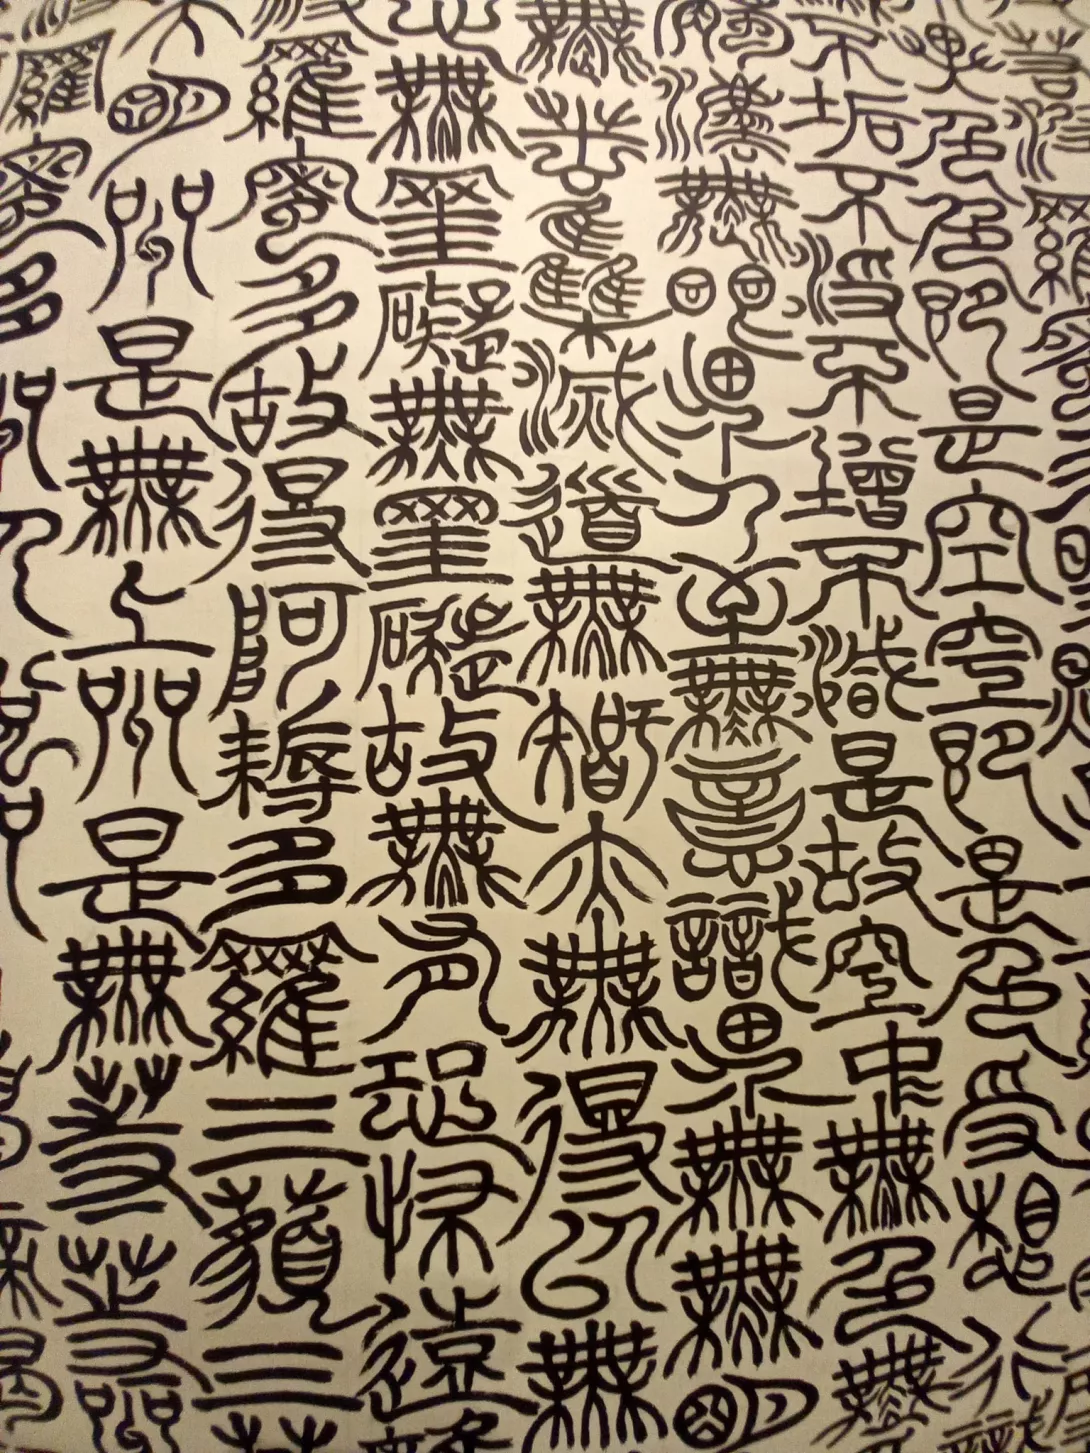 羅蜜多
異色色即是空空即是色受想行識
不垢不淨不增不減是故空中無色無
法無眼界乃至無意識界無無明
無苦集滅道無智亦無得以無
心無罣礙無罣礙故無有恐怖遠離
羅蜜多故得阿耨多羅三藐三菩
大明咒是無上咒是無等等咒
羅蜜多咒即說咒